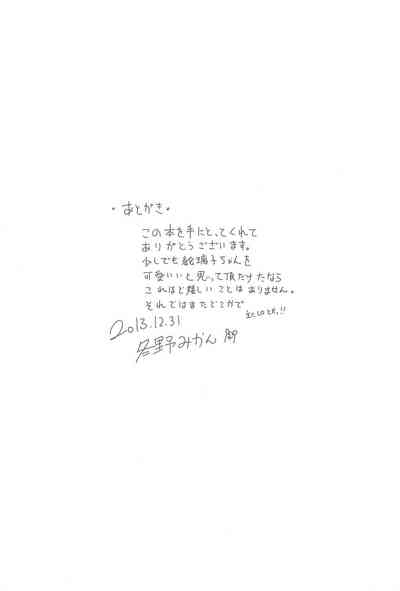 ・あとがき・
この本を手にとってくれて
ありがとうございます。
少しでも絵璃子ちゃんを
可愛いいと思って頂けたなら
これほど嬉しいことはありません。
それではまたどこかで
2013.12.31
みかん